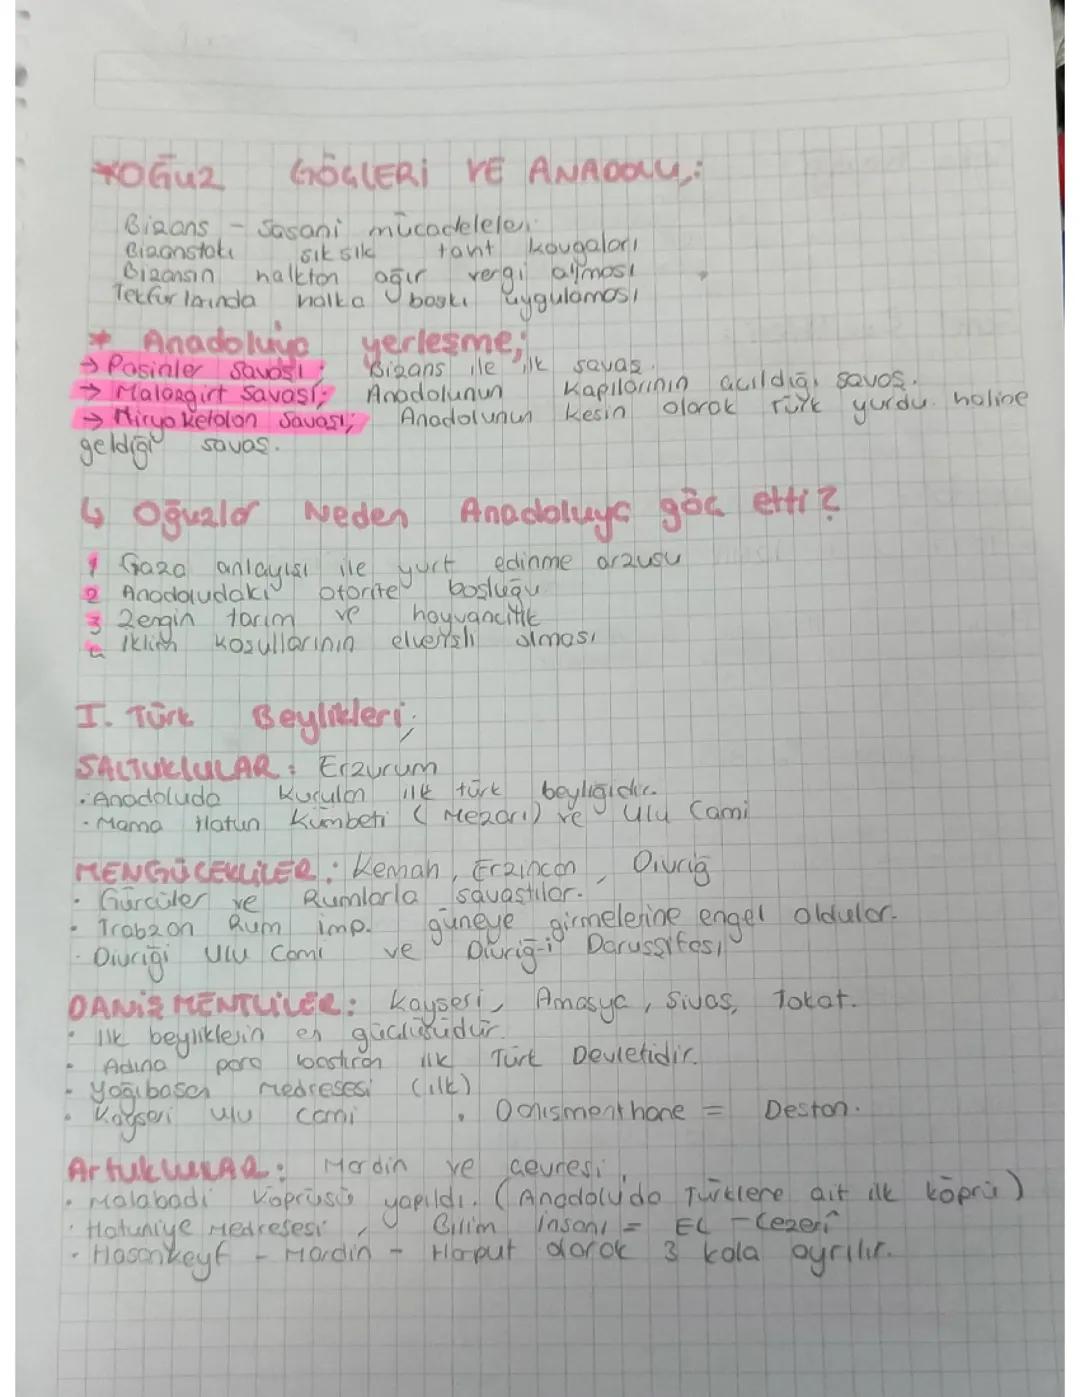 *OĞUZ GÖÇLERİ VE ANADOLU;:
Bizans - Sasani mücadeleleri
Bizanstaki sık sık taht kavgaları
Bizansın halktan ağır vergi alması
Tekfurlarında halka baskı uygulaması
* Anadoluya yerleşme;
→ Pasinler Savaşı; Bizans ile ilk savaş.
→ Malazgirt Savaşı; Anadolunun Kapılarının açıldığı savaş.
→ Miryokefolon Savaşı; Anadolunun kesin olarak Türk yurdu haline
geldiği savaş.
↳ Oğuzlar Neden Anadoluya göç etti?
1 Gaza anlayışı ile yurt edinme arzusu
2 Anadoludaki otorite boşluğu
3 Zengin tarım ve hayvancılık
4 İklim koşullarının elverişli olması
I. Türk Beylikleri;
SALTUKLULAR: Erzurum
• Anadoluda Kurulan ilk türk beyliğidir.
• Mama Hatun Kümbeti (Mezarı) ve Ulu Cami
MENGÜCEKLİLER: Kemah, Erzincan, Divriğ
• Gürcüler ve Rumlarla savaştılar.
• Trabzon Rum imp. güneye girmelerine engel oldular.
• Divriği Ulu Cami ve Divriğ-i Darüşşifası
DANİŞMENTLİLER: Kayseri, Amasya, Sivas, Tokat.
• İlk beyliklerin en güçlüsüdür.
• Adına para bastıran ilk Türk Devletidir.
• Yağıbasan medresesi (ilk)
• Kayseri ulu cami • Danışmenthane = Destan.
Artuklular: Mardin ve çevresi,
• Malabadi Köprüsü yapıldı. (Anadolu'da Türklere ait ilk köprü)
• Hatuniye Medresesi, Bilim İnsanı = EL-Cezerî
• Hasankeyf - Mardin - Harput olarak 3 kola ayrılır.